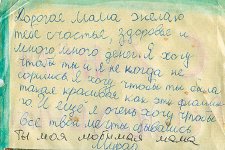 Дорогая Мама желаю
тебе счастье, здоровье и
много много денег. Я хочу
чтобы ты и я не когда не
сорились. Я хочу чтобы ты была
такая красивая как эти
го И ещё я очень хочу чтобы
все твои мечты сбывались
Ты моя любимая мама